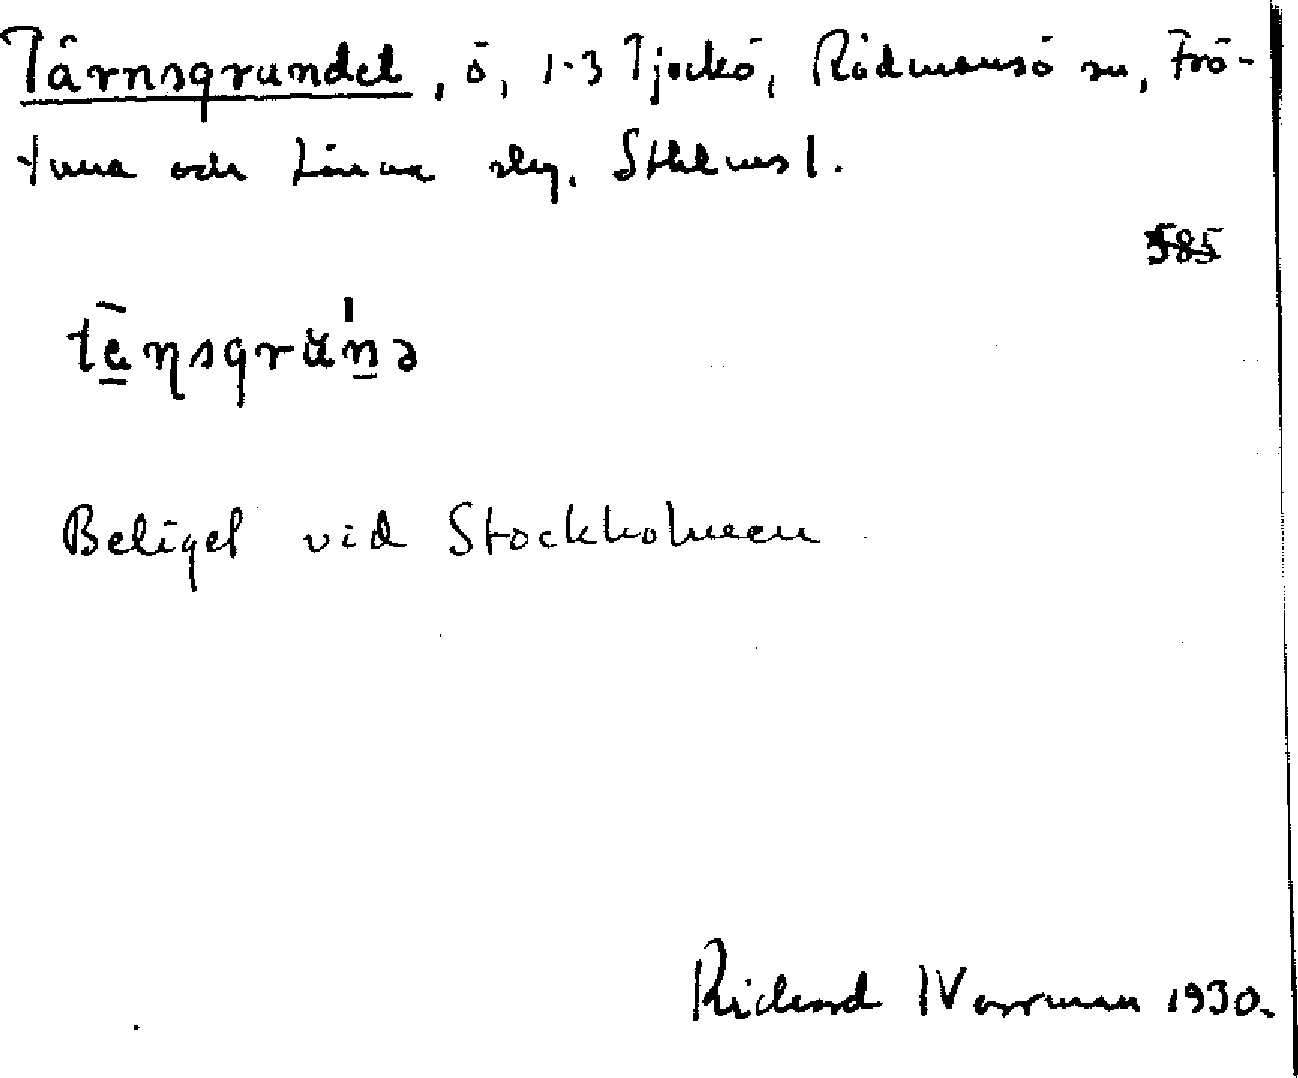 Tärnsgrundet, ö, 1-3 Tjockö, Rådmansö sn, Frö-
tuna och Länna slg. Sthlms l.
585
tēṉsgrṵ̆́nə
Beläget vid Stockholmen
Rickard Warrman 1930.